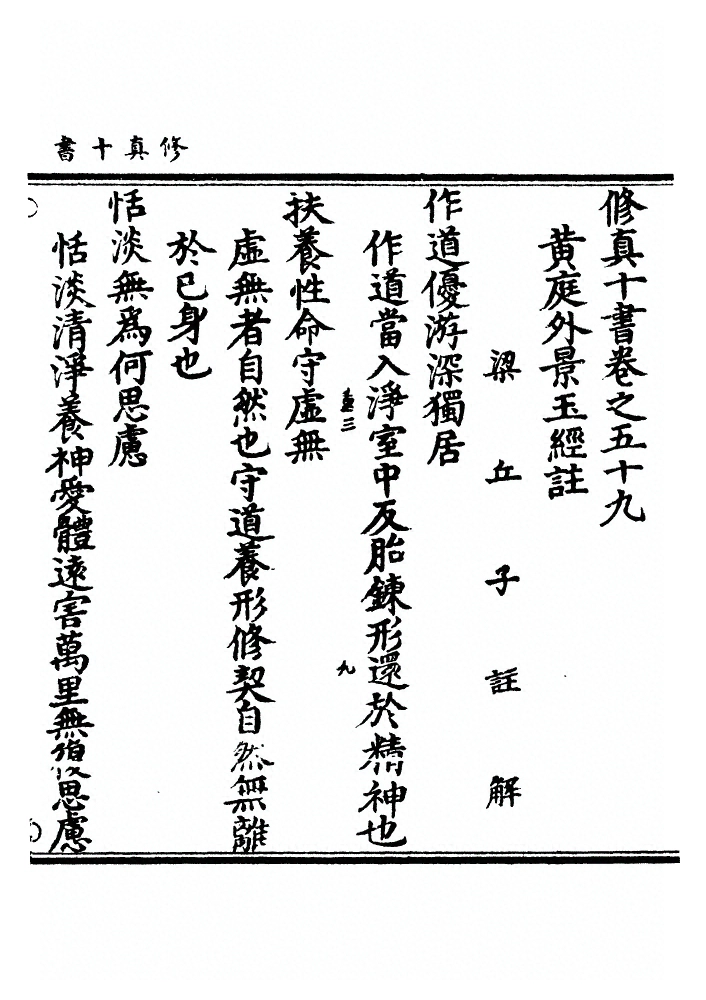 修真十書
修真十書卷之五十九
黃庭外景玉經註
梁丘子註解
作道優游深獨居
作道當入淨室中反胎鍊形還於精神也
三
九
扶養性命守虛無
虛無者自然也守道養形修契自然無離
於已身也
恬淡無為何思慮
恬淡清淨養神愛體遠害萬里無復思慮